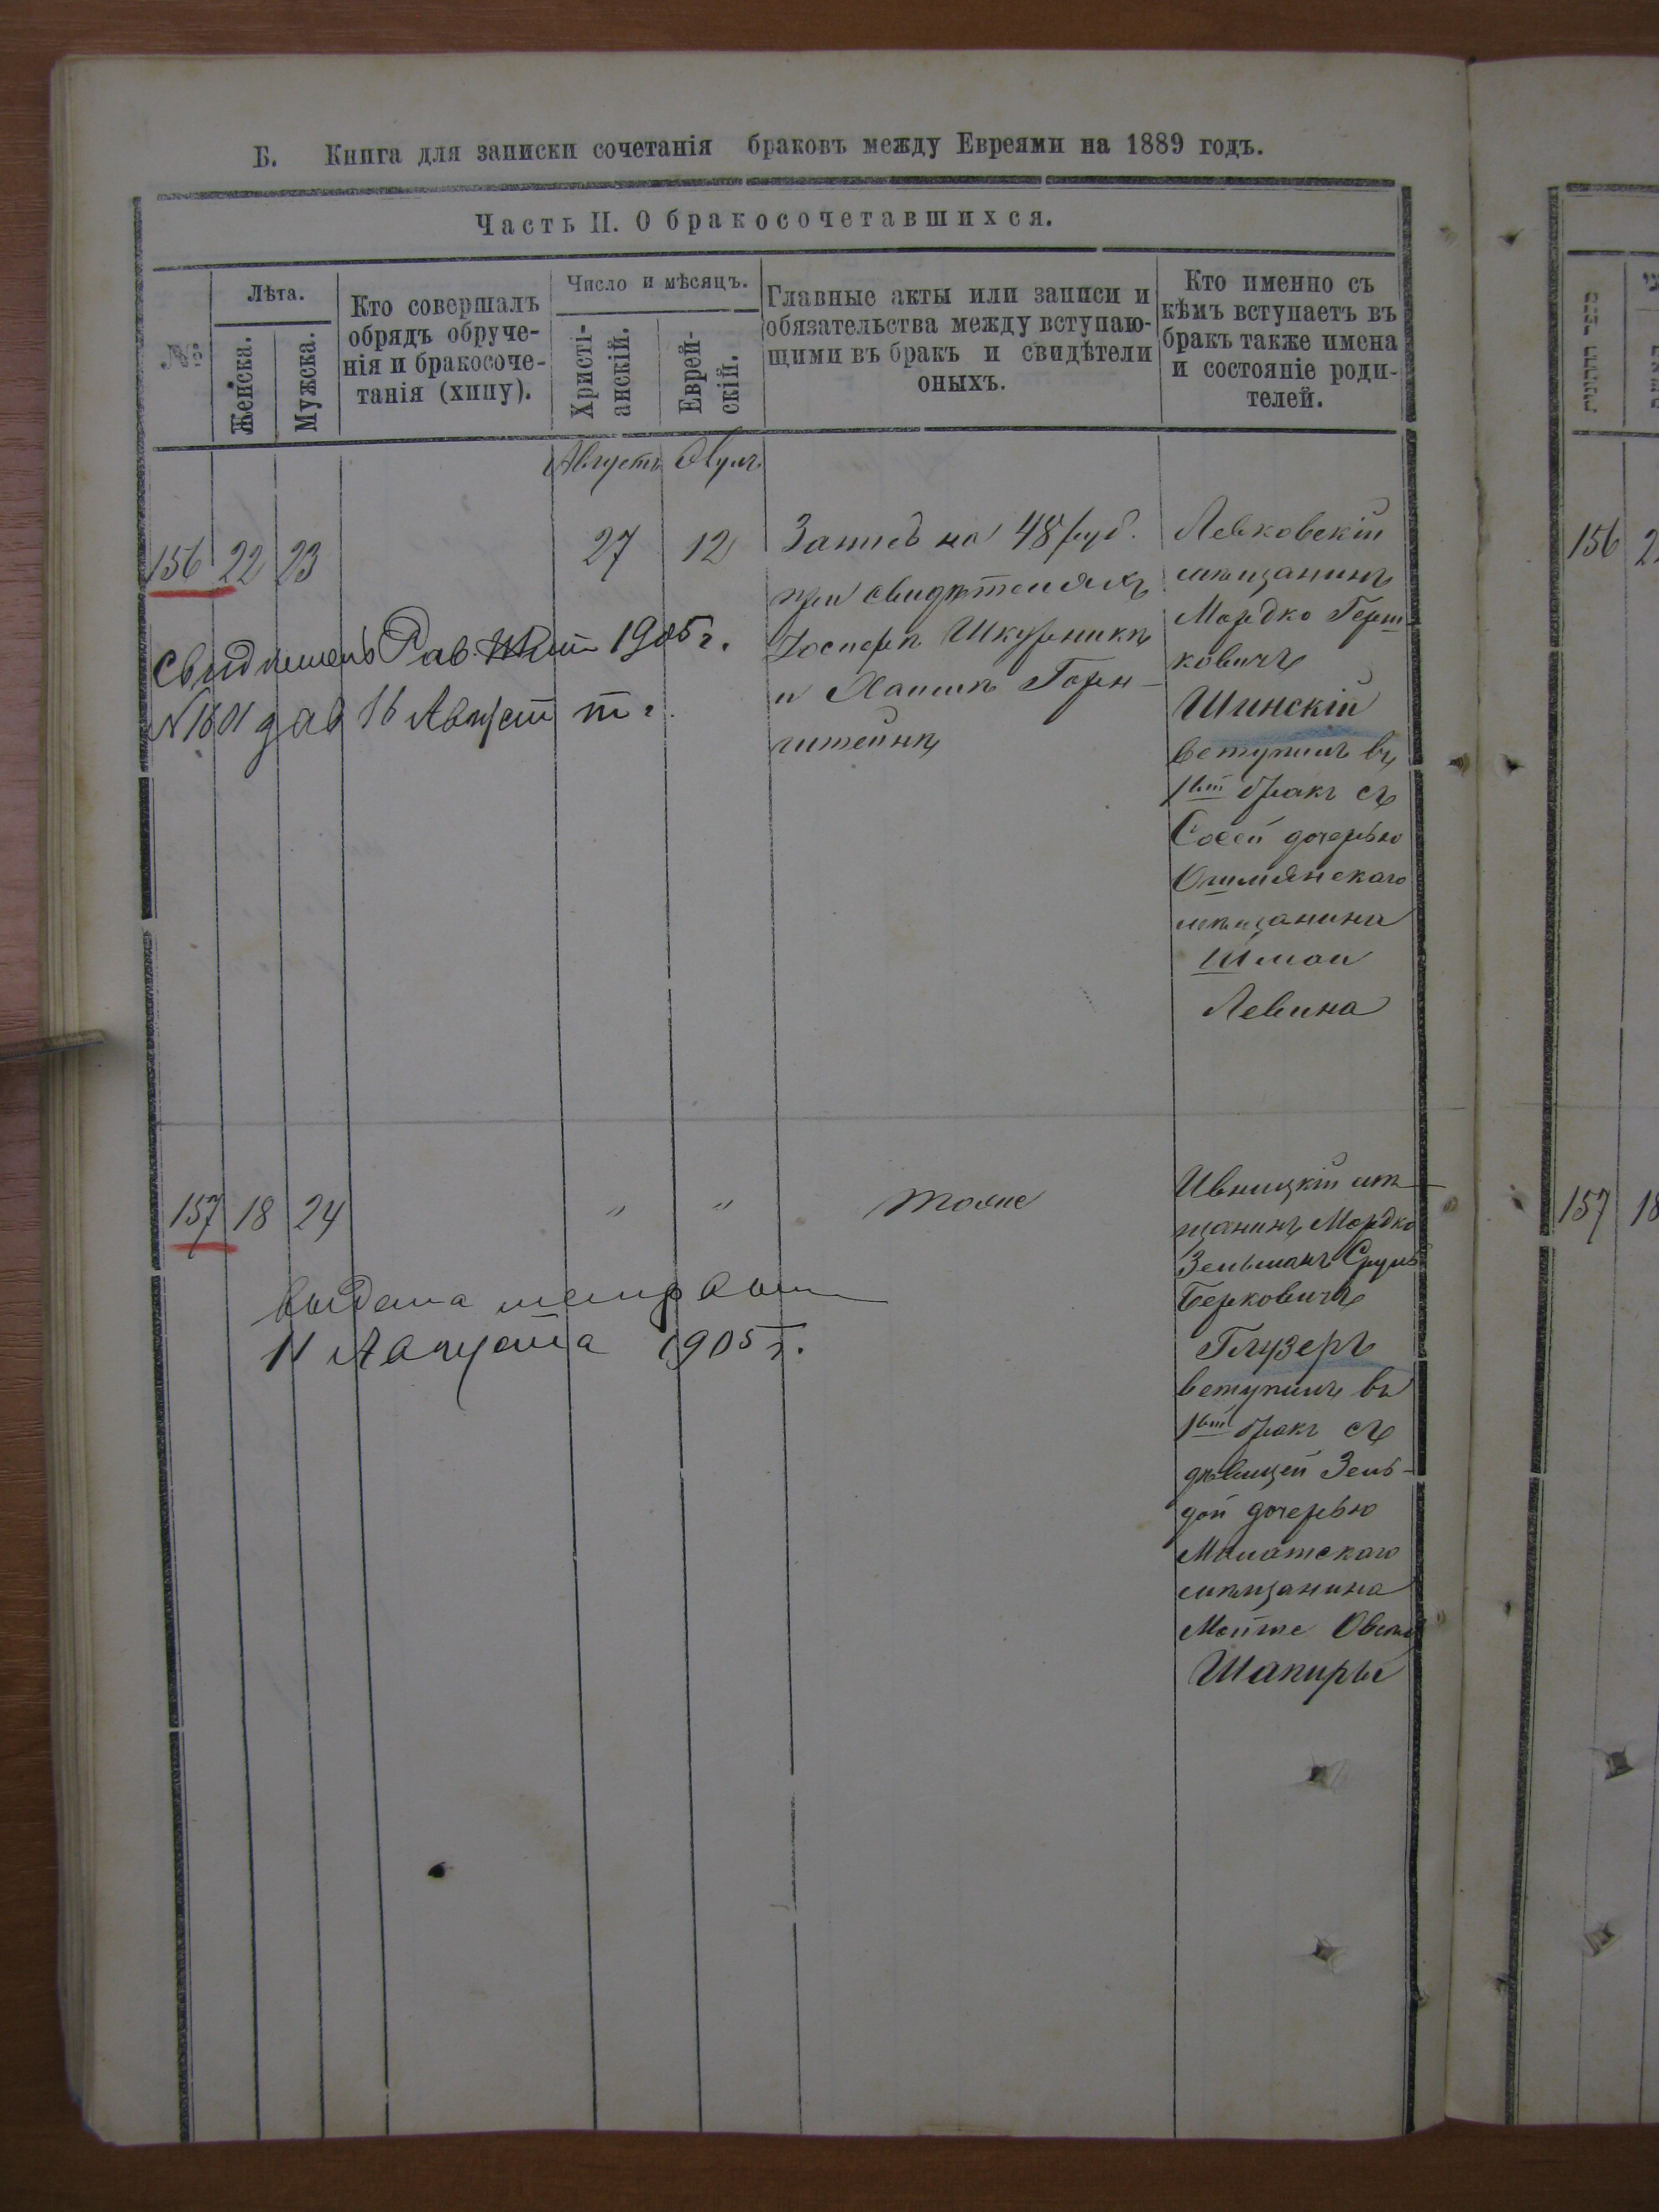 Б. Книга для записки сочетанія браковъ между Евреями на 1889 годъ.
Часть II. О бракосочетавшихся.
№
Лѣта.
Женска.
Мужска.
Кто совершалъ
обрядъ обруче-
нія и бракосоче-
танія (хипу).
Число и мѣсяцъ.
Христі-
анскій.
Еврей-
скій.
Главные акты или записи и
обязательства между вступаю-
щими въ бракъ и свидѣтели
оныхъ.
Кто именно съ
кѣмъ вступаетъ въ
бракъ также имена
и состояніе роди-
телей.
Августъ
156 22 23 27 12
Запись на 48 руб.
при свидѣтеляхъ
Іосперѣ Шкурникѣ
и Хаимѣ Горн-
штейнѣ
Левковскій
мѣщанинъ
Мордко Герш-
ковичъ
Шинскій
вступилъ въ
1вый бракъ съ
Сосей дочерью
Ошмянскаго
мѣщанина
Шмаи
Левина
1905 г.
N 1601 16 Август т г.
157 18 24 " " тоже
Ивницкій мѣ-
щанинъ Мордко
Зельманъ Сруль
Берковичъ
Глузеръ
вступилъ въ
1вый бракъ съ
дѣвицей Зель-
дой дочерью
Малатскаго
мѣщанина
Мейте
Шапиры
выдана
11 Августа 1905 г.
156
157 18